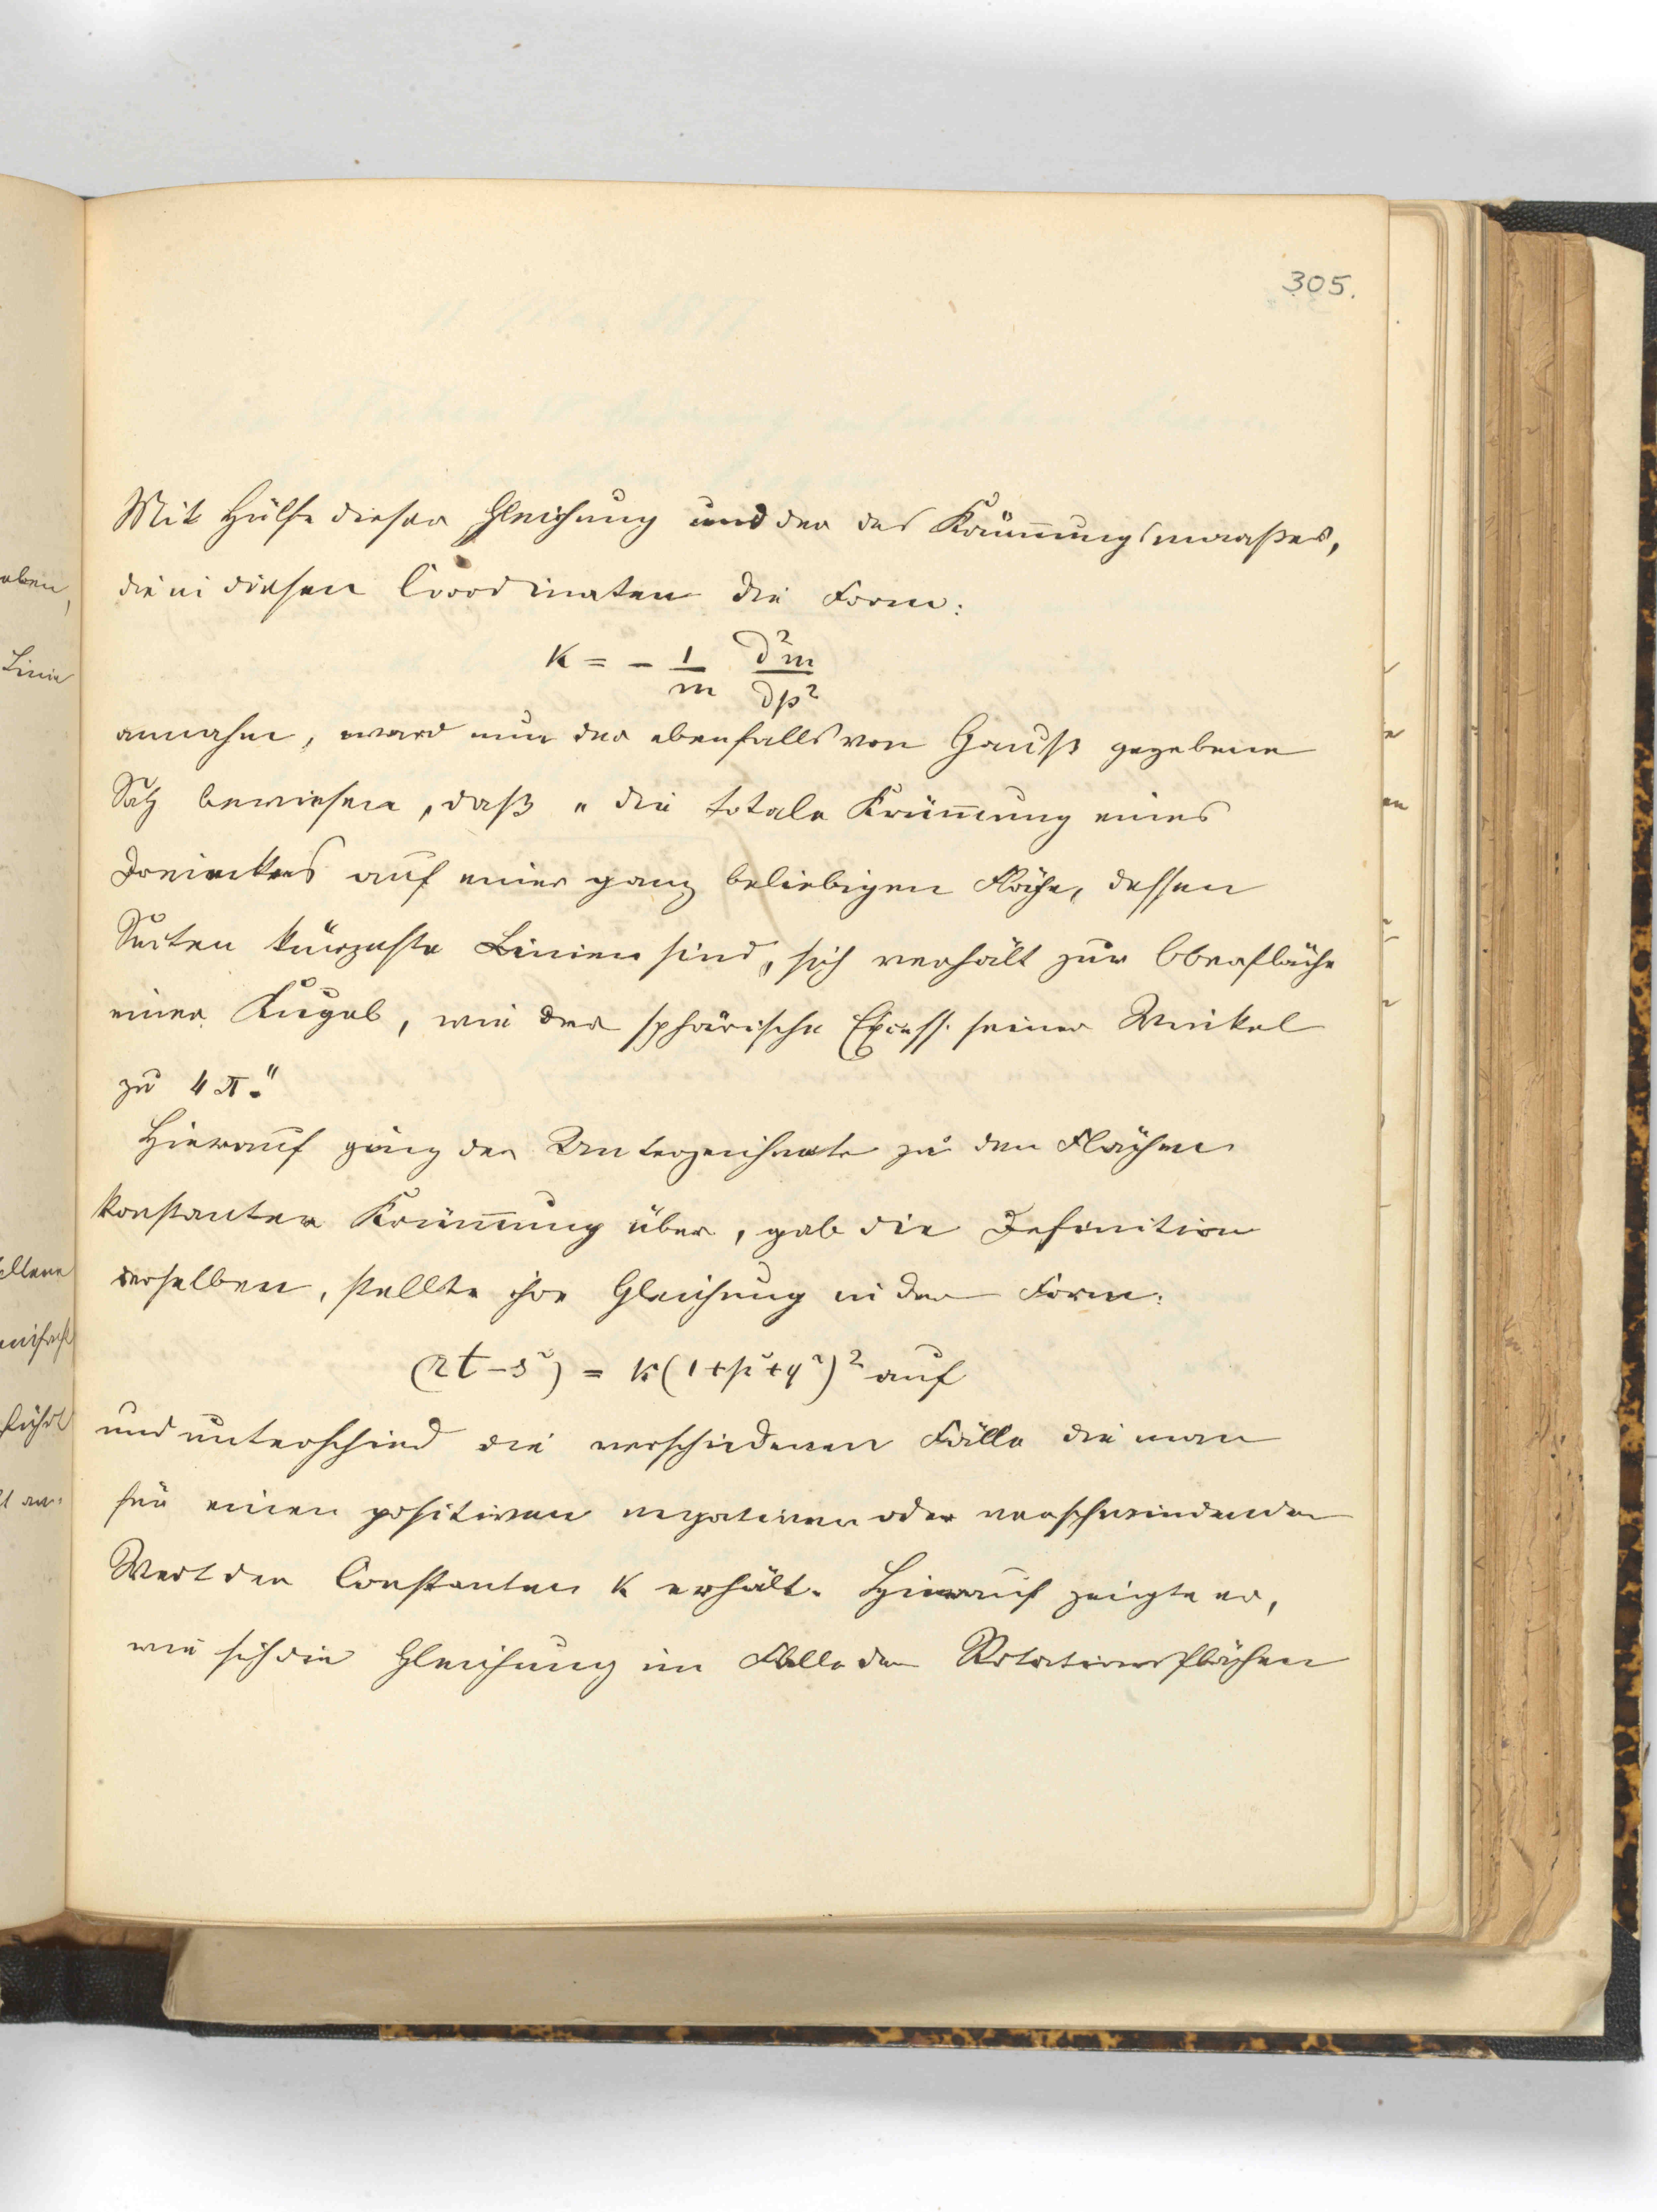 305.
Mit Hülfe dieser Gleichung und der des Krüm̅ungsmaaßes,
die in diesen Coordinaten die Form:
k = - 1/m ∂²m/∂p²
annahm, ward nun der ebenfalls von Gauß gegebene
Satz bewiesen, daß „die totale Krüm̅ung eines
Dreieckes auf einer ganz beliebigen Fläche, dessen
Seiten kürzeste Linien sind, sich verhält zur Oberfläche
einer Kugel, wie der sphärische Exceß seiner Winkel
zu 4π."
Hierauf ging der Unterzeichnete zu den Flächen
konstanter Krüm̅ung über, gab die Definition
derselben, stellte ihre Gleichung in der Form:
(rt-s²) = k(1+p²+q²)² auf
und unterschied die verschiedenen Fälle die man
für einen positiven negativen oder verschwindenden
Wert der Constanten k erhält. Hierauf zeigte er,
wie sich die Gleichung im Falle der Rotationsflächen